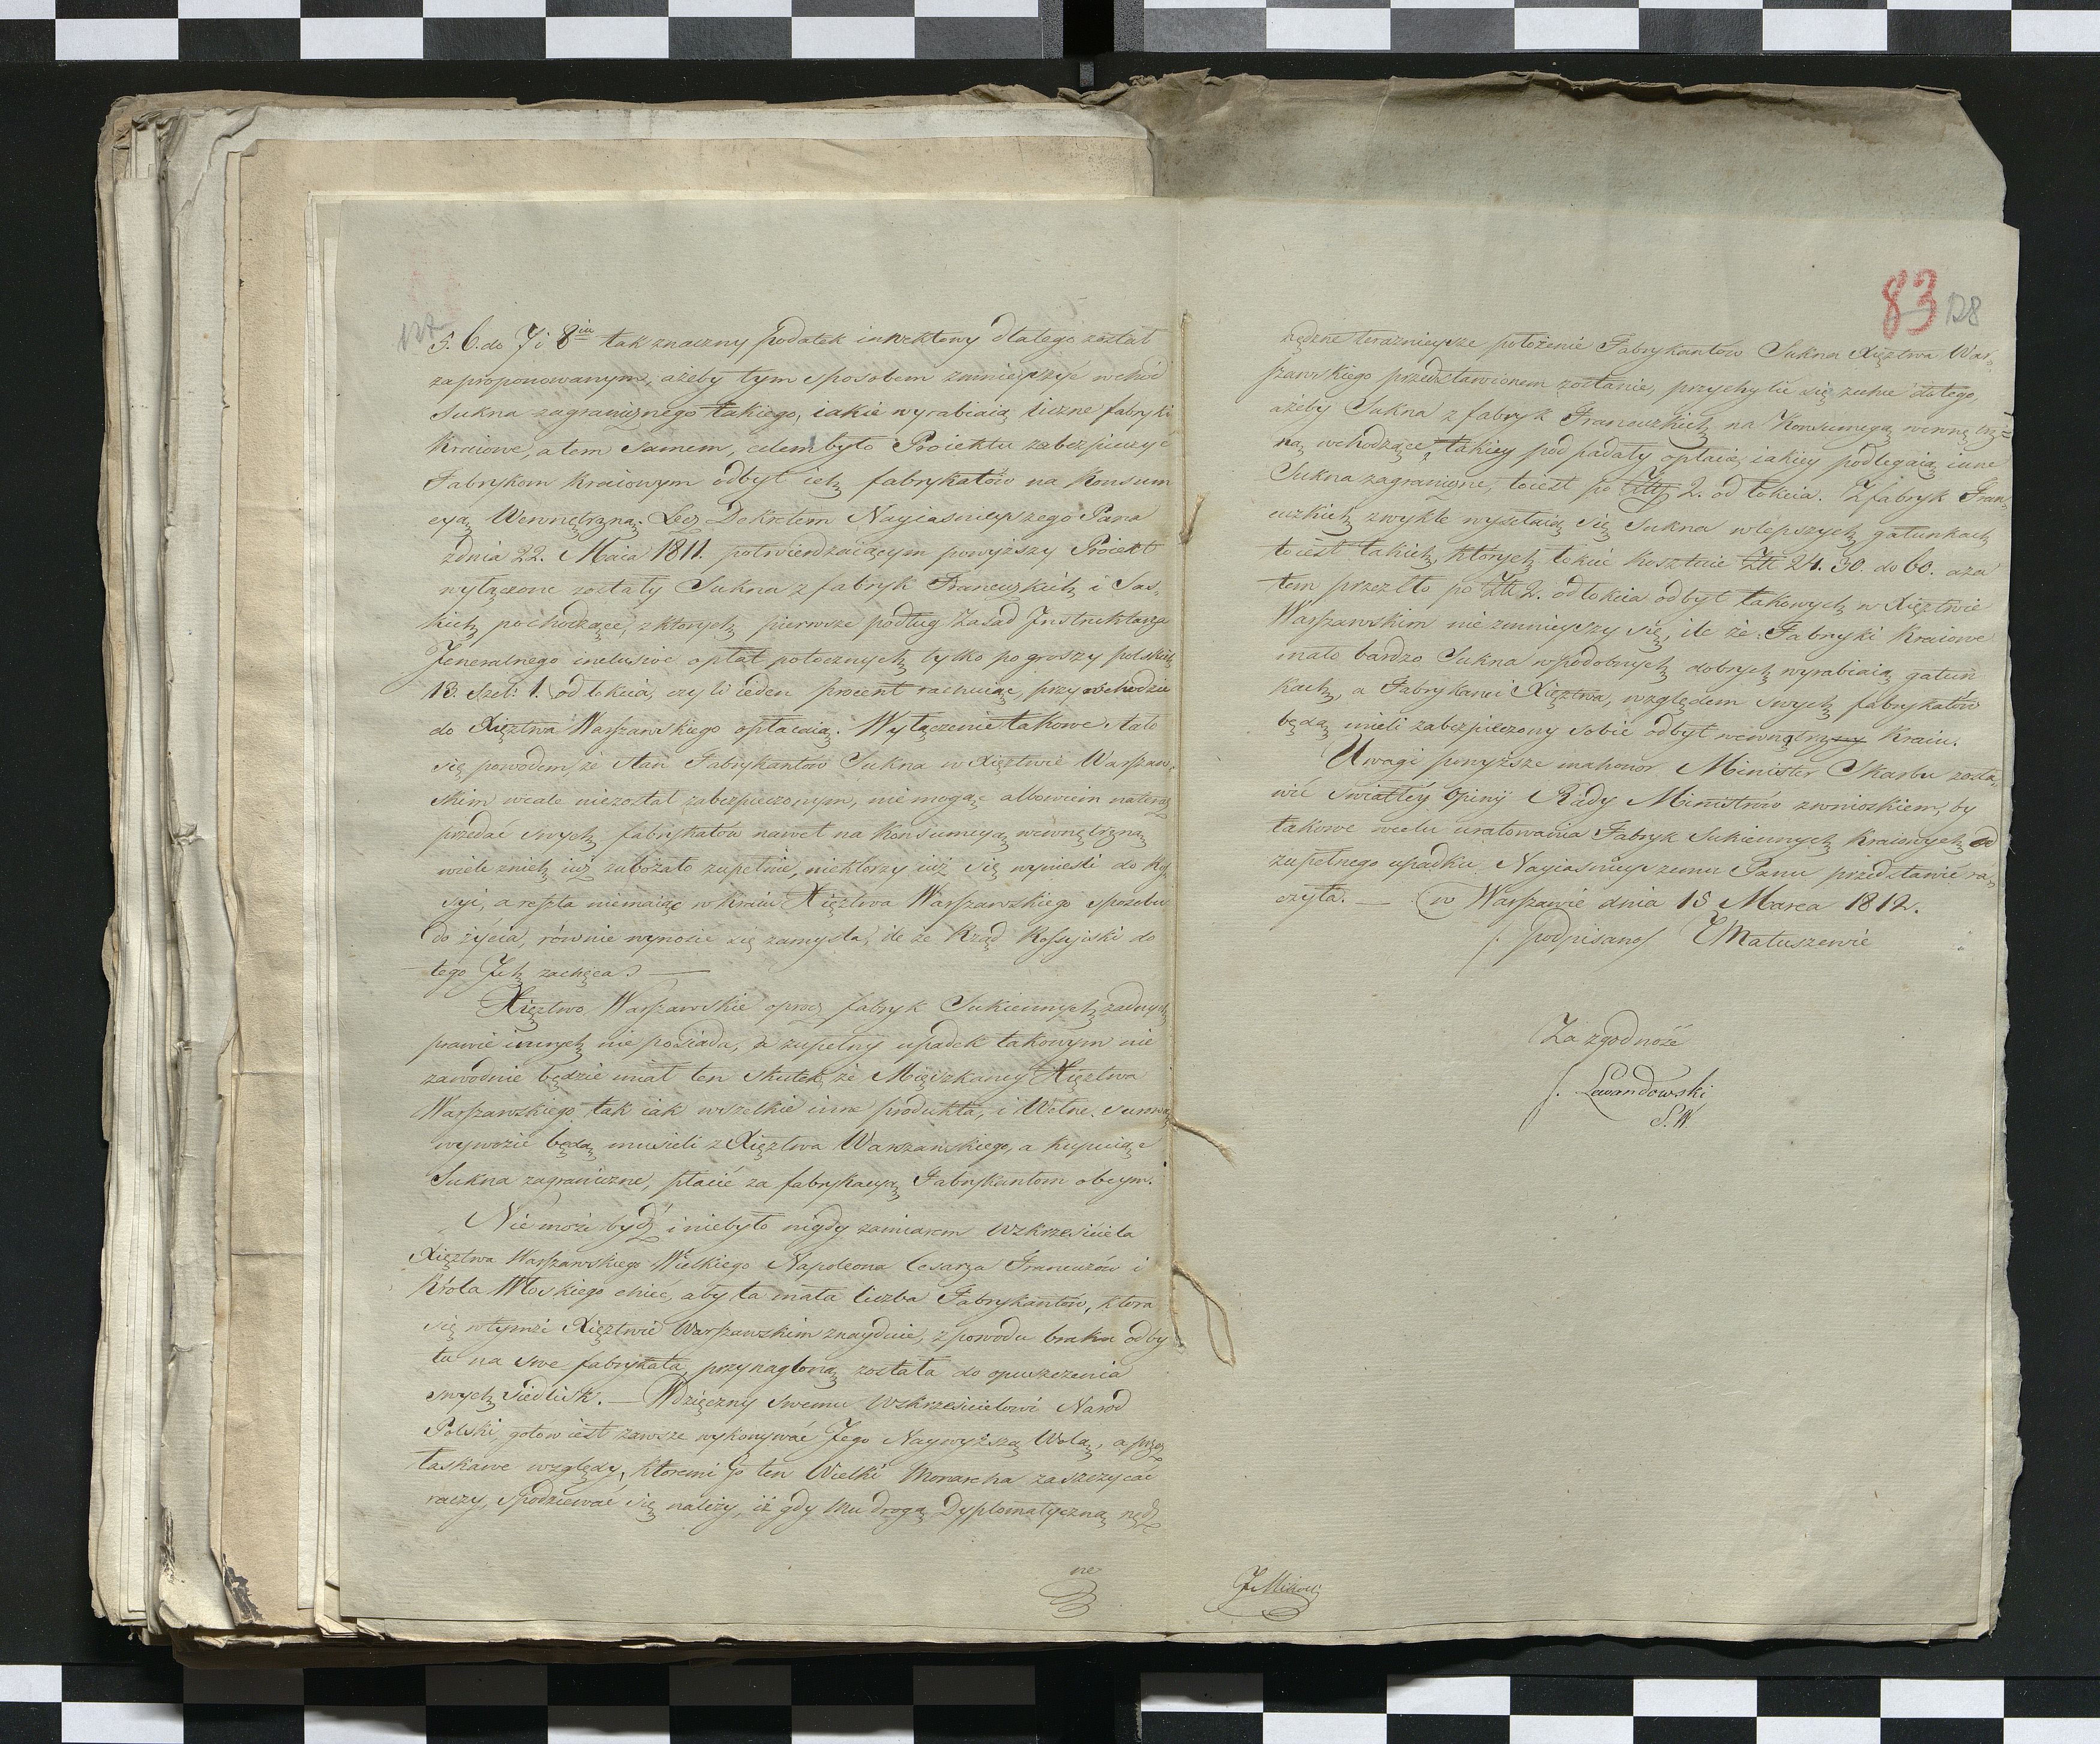 5. 6. do 7 i 8iu tak znaczny podatek inwektowy dlatego został
zaproponowanym, ażeby tym sposobem zmnieyszyć wchód
Sukna zagranicznego takiego, iakie wyrabiaią liczne fabryki
Kraiowe, a tem samem, celem było Proiektu zabezpieczyć
Fabrykom Kraiowym odbyt ich fabrykatów na Konsum
cyą Wewnętrzną. Lecz Dekretem Nayiaśnieyszego Pana
z dnia 22. Maia 1811. potwierdzaiącym powyższy Proiekt
wyłączone zostały Sukna z fabryk Francuzkich i Sas,
kich pochodzące, z których pierwsze podług Zasad Instruktarza
Jeneralnego inclusive opłat potocznych tylko po groszy polskich
13. szel: 1. od łokcia, czyli ieden procent rachuiąc, przy wchodzie
do Xięztwa Warszawskiego opłacaią. Wyłączenie takowe stało
się powodem, że stan Fabrykantów Sukna w Xięztwie Warszaw,
skim wcale niezostał zabezpieczonym, nie mogąc albowiem nateraz
przedać swych fabrykatów nawet na Konsumcyą wewnętrzną
wiele z nich iuż zubożało zupełnie, niektórzy iuż się wynieśli do Ros,
syi, a reszta niemaiąc w Kraiu Xięztwa Warszawskiego sposobu
do życia, równie wynosić się zamyśla, ile że Rząd Rossyiski do
tego Ich zachęca. —
Xięztwo Warszawskie oprócz fabryk Sukiennych żadnych
prawie innych nie posiada, a zupełny upadek takowym nie
zawodnie będzie miał ten skutek, że Mięszkańcy Xięztwa
Warszawskiego tak iak wszelkie inne produkta, i Wełnę surową
wywozić będą musieli z Xięztwa Warszawskiego, a kupuiąc
Sukna zagraniczne, płacić za fabrykacyą Fabrykantom obcym.
Nie może bydź i niebyło nigdy zamiarem Wzkrzesiciela
Xięztwa Warszawskiego Wielkiego Napoleona Cesarza Francuzów i
Króla Włoskiego chcieć, aby ta mała liczba Fabrykantów, która
się w tymże Xięztwie Warszawskim znayduie, z powodu braku odby
tu na swe fabrykata przynagloną została do opuszczenia
swych siedlisk. — Wdzięczny swemu Wzkrzesicielowi Naród
Polski, gotów iest zawsze wykonywać Jego Naywyższą Wolą, a przez
łaskawe względy, któremi go ten Wielki Monarcha zaszczycać
raczy, spodziewać się należy, iż gdy Mu drogą Dyplomatyczną nędz
ne
83 128
nędzne teraźnieysze położenie Fabrykantów Sukna Xięztwa War,
szawskiego przedstawionem zostanie, przychyli się zatem do tego,
ażeby Sukna z fabryk Francuzkich na Konsumcyą wewnętrz,
ną wchodzące, takiey pod padały opłacie iakiey podlegaią inne
Sukna zagraniczne, to iest po Złł 2. od łokcia. Z fabryk Fran,
cuzkich zwykle wysełaią się Sukna w lepszych gatunkach
to iest takich, których łokieć kosztuie Złł 24. 30. do 60. a za
tem przez to po Złł 2. od łokcia odbyt takowych w Xięztwie
Warszawskim nie zmnieyszy się, ile że Fabryki Kraiowe
mało bardzo Sukna w podobnych dobrych wyrabiaią gatun
kach, a Fabrykanci Xięztwa, względem swych fabrykatów
będą mieli zabezpieczony sobie odbyt wewnątrz Kraiu.
Uwagi powyższe ma honor Minister Skarbu zosta,
wić światłey Opinij Rady Ministrów z wnioskiem, by
takowe w celu uratowania Fabryk Sukiennych Kraiowych od
zupełnego upadku Nayiaśnieyszemu Panu przedstawić ra,
czyła. — w Warszawie dnia 15 Marca 1812.
/: podpisano / T Matuszewic
Za zgodność
J. Lewandowski
S.W